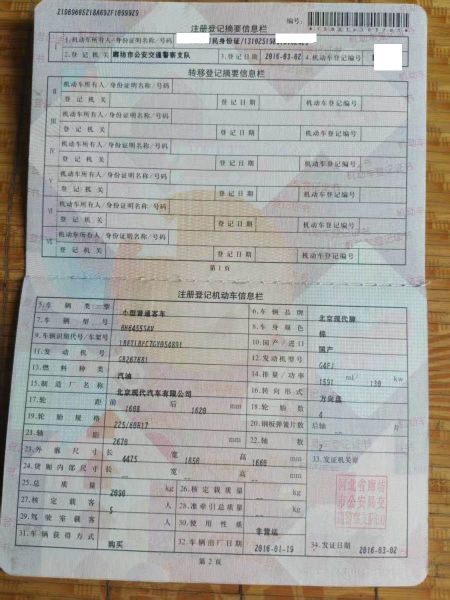 注册登记摘要信息栏
编号:
1.机动车所有人/身份证明名称/号码
2.登记机关 廊坊市公安交通警察支队 3.登记日期 2016-03-02 4.机动车登记编号
转移登记摘要信息栏
机动车所有人/身份证明名称/号码
II 登记机关 登记日期 机动车登记编号
机动车所有人/身份证明名称/号码
III 登记机关 登记日期 机动车登记编号
机动车所有人/身份证明名称/号码
IV 登记机关 登记日期 机动车登记编号
机动车所有人/身份证明名称/号码
V 登记机关 登记日期 机动车登记编号
机动车所有人/身份证明名称/号码
VI 登记机关 登记日期 机动车登记编号
机动车所有人/身份证明名称/号码
VII 登记机关 登记日期 机动车登记编号
第1页
注册登记机动车信息栏
5.车辆类型 小型普通客车 6.车辆品牌 北京现代牌
7.车辆型号 8.车身颜色 棕
9.车辆识别代号/车架号 10.国产/进口 国产
11.发动机号 12.发动机型号 G4FJ
13.燃料种类 汽油 14.排量/功率 1591 ml/ 130 kw
15.制造厂名称 北京现代汽车有限公司 16.转向形式 方向盘
17.轮距 前 1608 后 1620 mm 18.轮胎数 4
19.轮胎规格 225/60R17 20.钢板弹簧片数 后轴 片
21.轴距 2670 mm 22.轴数 2
23.外廓尺寸 长 4475 宽 1850 高 1660 mm 33.发证机关章
24.货厢内部尺寸 长 宽 高 mm
25.总质量 kg 26.核定载质量 kg
27.核定载客 5 人 28.准牵引总质量 kg
29.驾驶室载客 人 30.使用性质 非营运
31.车辆获得方式 购买 32.车辆出厂日期 2016-01-19 34.发证日期 2016-03-02
第2页